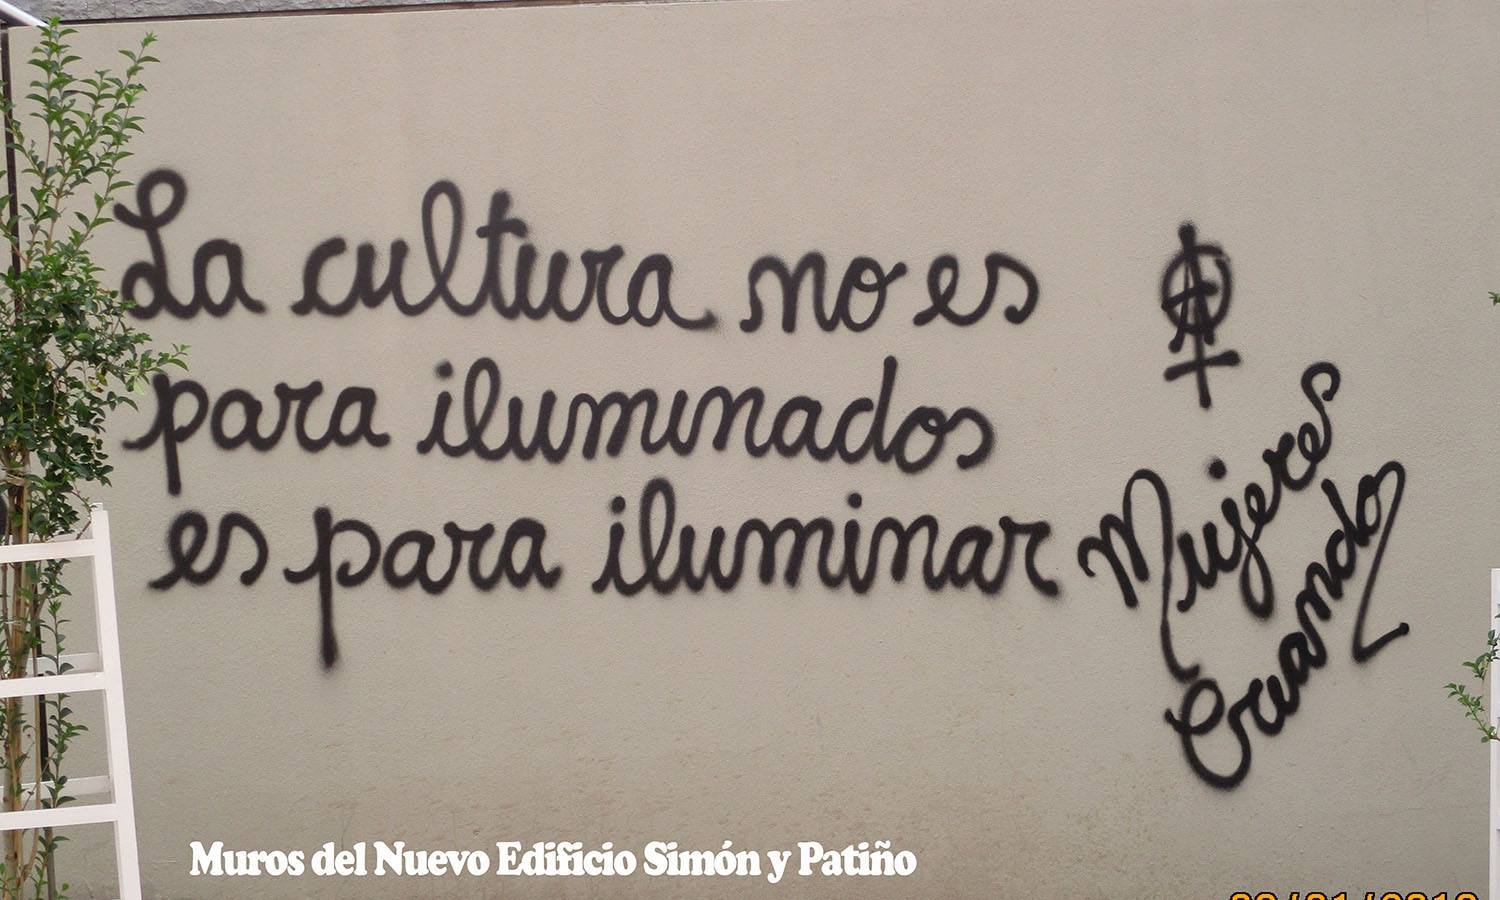 La cultura no es
para iluminados
es para iluminar
Mujeres
Creando
Muros del Nuevo Edificio Simón y Patiño